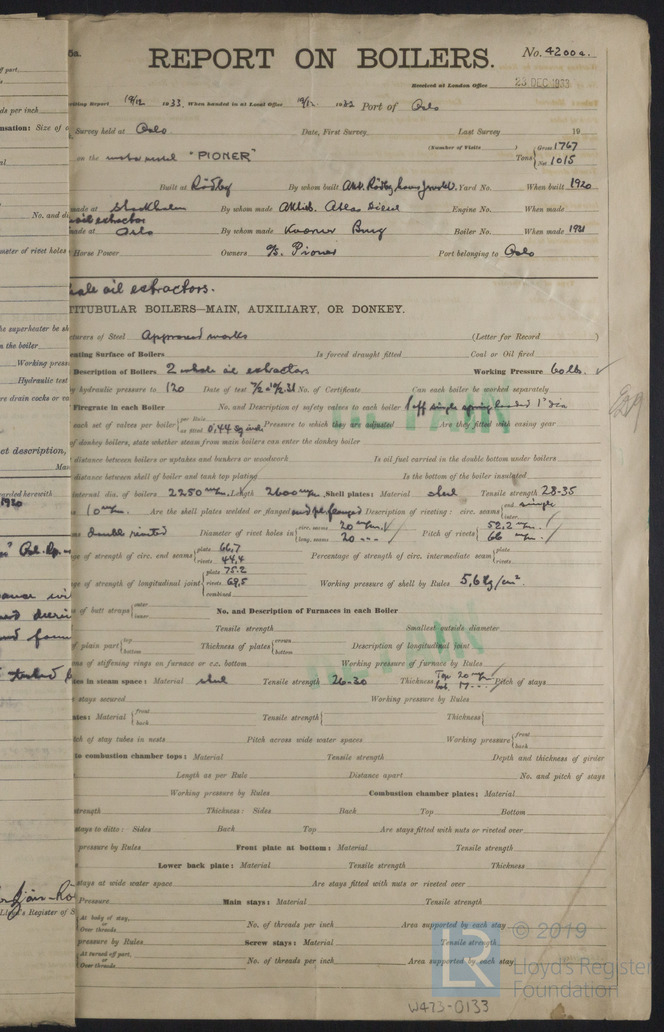 5a.
REPORT ON BOILERS.
No. 4200a.
Received at London Office 23 DEC 1933
Writing Report 19/12 1933 When handed in at Local Office 19/12 1933 Port of Oslo
Survey held at Oslo Date, First Survey Last Survey 19
(Number of Visits )
on the "PIONER" Tons { Gross 1767
Net 1015
Built at Rödby By whom built Yard No. When built 1920
made at Stockholm By whom made Aktieb. Atlas Diesel Engine No. When made
oil extractor
made at Oslo By whom made Kværner Brug Boiler No. When made 1931
Horse Power Owners A/S. Pioner Port belonging to Oslo
whale oil extractors.
TITUBULAR BOILERS—MAIN, AUXILIARY, OR DONKEY.
turers of Steel Approved works (Letter for Record )
eating Surface of Boilers Is forced draught fitted Coal or Oil fired
Description of Boilers 2 whale oil extractors Working Pressure 60 lbs.
by hydraulic pressure to 120 Date of test No. of Certificate Can each boiler be worked separately
Firegrate in each Boiler No. and Description of safety valves to each boiler 1 off single spring loaded 1" dia
each set of valves per boiler { per Rule
as fitted 0,44 sq inch Pressure to which they are adjusted Are they fitted with easing gear
of donkey boilers, state whether steam from main boilers can enter the donkey boiler
distance between boilers or uptakes and bunkers or woodwork Is oil fuel carried in the double bottom under boilers
distance between shell of boiler and tank top plating Is the bottom of the boiler insulated
internal dia. of boilers 2250 mm. Length 2600 mm. Shell plates: Material steel Tensile strength 28-35
10 mm. Are the shell plates welded or flanged end pl. flanged Description of riveting: circ. seams { end single
inter.
ms double riveted Diameter of rivet holes in { circ. seams 20 mm.
long. seams 20 --- Pitch of rivets { 52,2 mm.
66 mm.
ge of strength of circ. end seams { plate 66,7
rivets 44,4 Percentage of strength of circ. intermediate seam { plate
rivets
ge of strength of longitudinal joint { plate 75.2
rivets 69,5
combined Working pressure of shell by Rules 5,6 kg/cm².
of butt straps { outer
inner No. and Description of Furnaces in each Boiler
Tensile strength Smallest outside diameter
of plain part { top
bottom Thickness of plates { crown
bottom Description of longitudinal joint
ons of stiffening rings on furnace or c.c. bottom Working pressure of furnace by Rules
es in steam space: Material steel Tensile strength 26-30 Thickness Top 20 mm
bot. 17 --- Pitch of stays
stays secured Working pressure by Rules
ates: Material { front
back Tensile strength { Thickness {
tch of stay tubes in nests Pitch across wide water spaces Working pressure { front
back
to combustion chamber tops: Material Tensile strength Depth and thickness of girder
Length as per Rule Distance apart No. and pitch of stays
Working pressure by Rules Combustion chamber plates: Material
strength Thickness: Sides Back Top Bottom
stays to ditto: Sides Back Top Are stays fitted with nuts or riveted over
pressure by Rules Front plate at bottom: Material Tensile strength
Lower back plate: Material Tensile strength Thickness
stays at wide water space Are stays fitted with nuts or riveted over
Pressure Main stays: Material Tensile strength
At body of stay,
or
Over threads No. of threads per inch Area supported by each stay
pressure by Rules Screw stays: Material Tensile strength
At turned off part,
or
Over threads No. of threads per inch Area supported by each stay
W473-0133
LR
© 2019
Lloyd's Register
Foundation